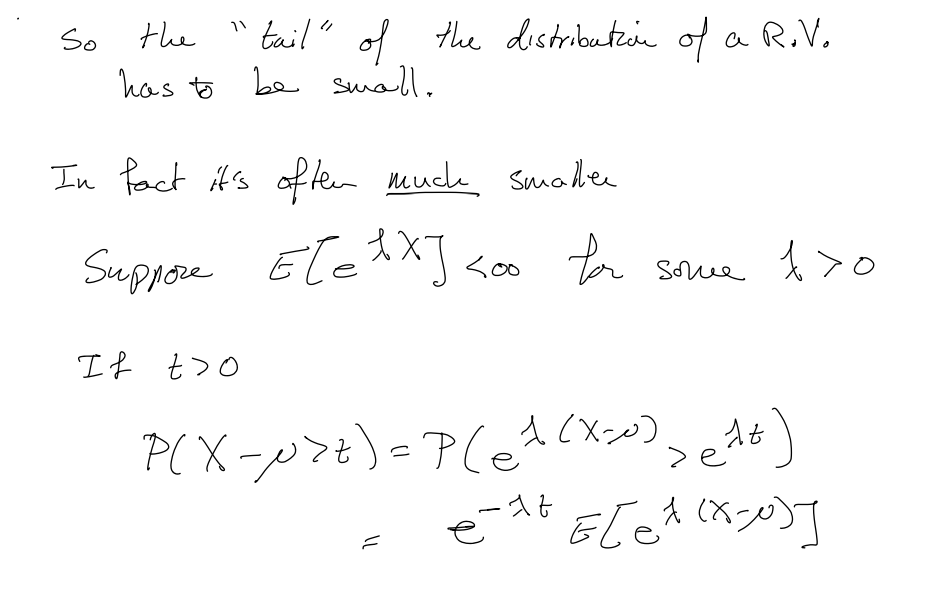 So the "tail" of the distribution of a R.V.
has to be small.
In fact it's often much smaller
Suppose E[e^{λX}] <∞ for some λ>0
If t>0
P(X-μ>t) = P(e^{λ(X-μ)} > e^{λt})
= e^{-λt} E[e^{λ(X-μ)}]